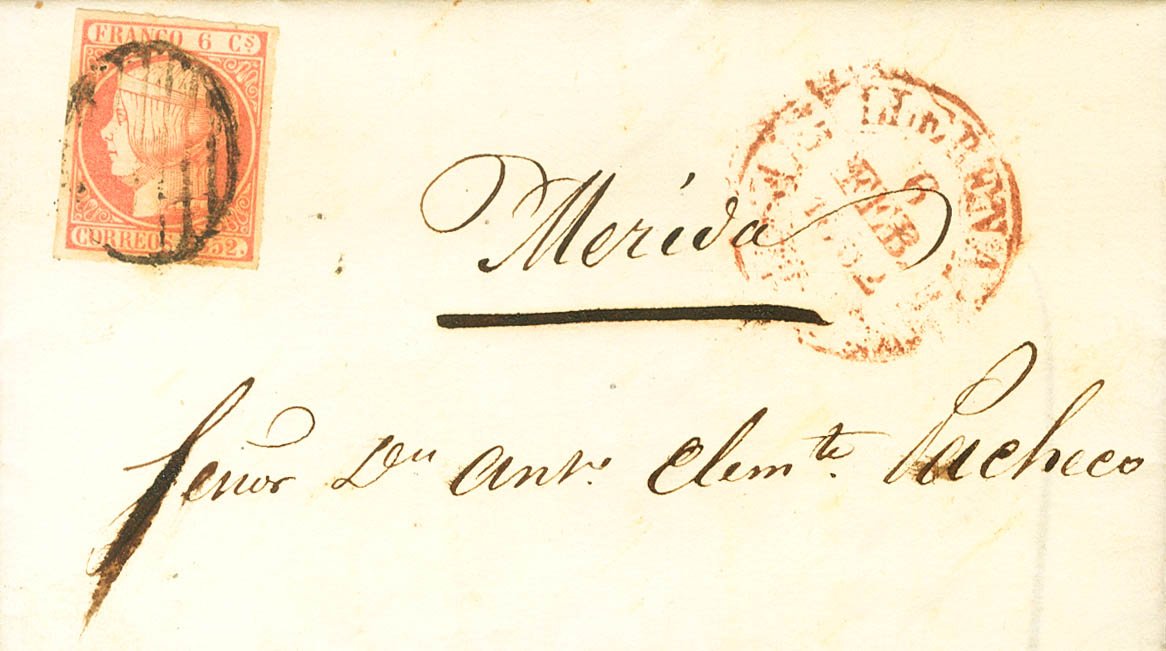 FRANCO 6 Cs
CORREOS 1852.
LLERENA
6
FEB
1852
Merida
Señor Dn Anto. Clemte. Pacheco